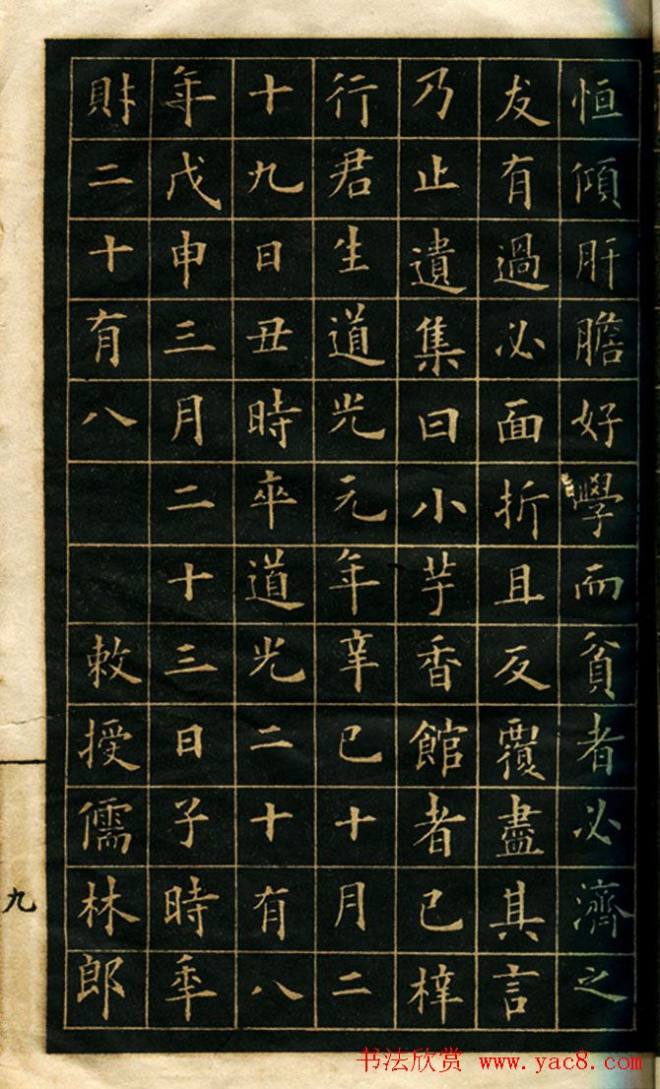 恒傾肝膽好學而貧者必濟之
友有過必面折且反覆盡其言
乃止遺集曰小芋香館者已梓
行君生道光元年辛巳十月二
十九日丑時卒道光二十有八
年戊申三月二十三日子時年
財二十有八 敕授儒林郎
九
书法欣赏 www.yac8.com